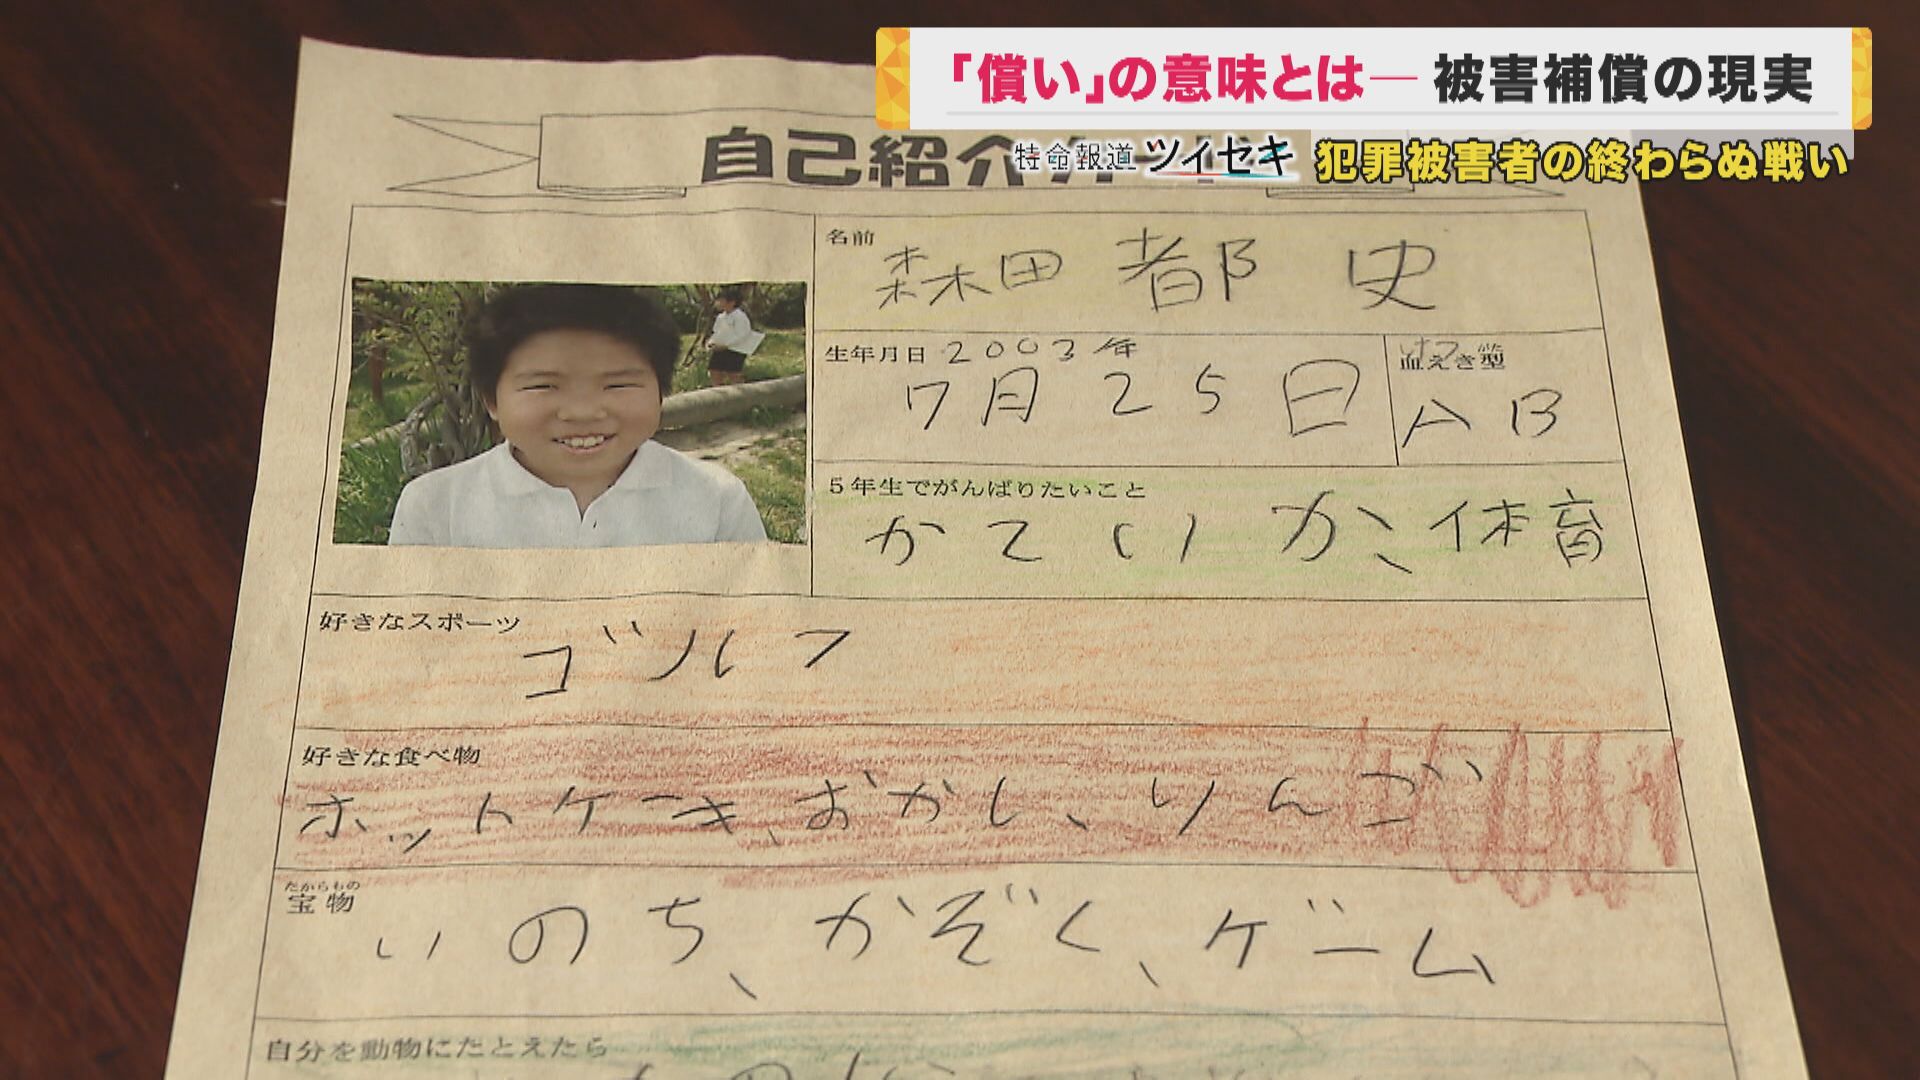 「償い」の意味とは― 被害補償の現実
特命報道 ツイセキ 犯罪被害者の終わらぬ戦い
自己紹介
名前
森田 都史
生年月日 2003年
7月25日
けつ がた
血えき型
AB
5年生でがんばりたいこと
かていか、体育
好きなスポーツ
ゴルフ
好きな食べ物
ホットケーキ、おかし、りんご
たからもの
宝物
いのち、かぞく、ゲーム
自分を動物にたとえたら